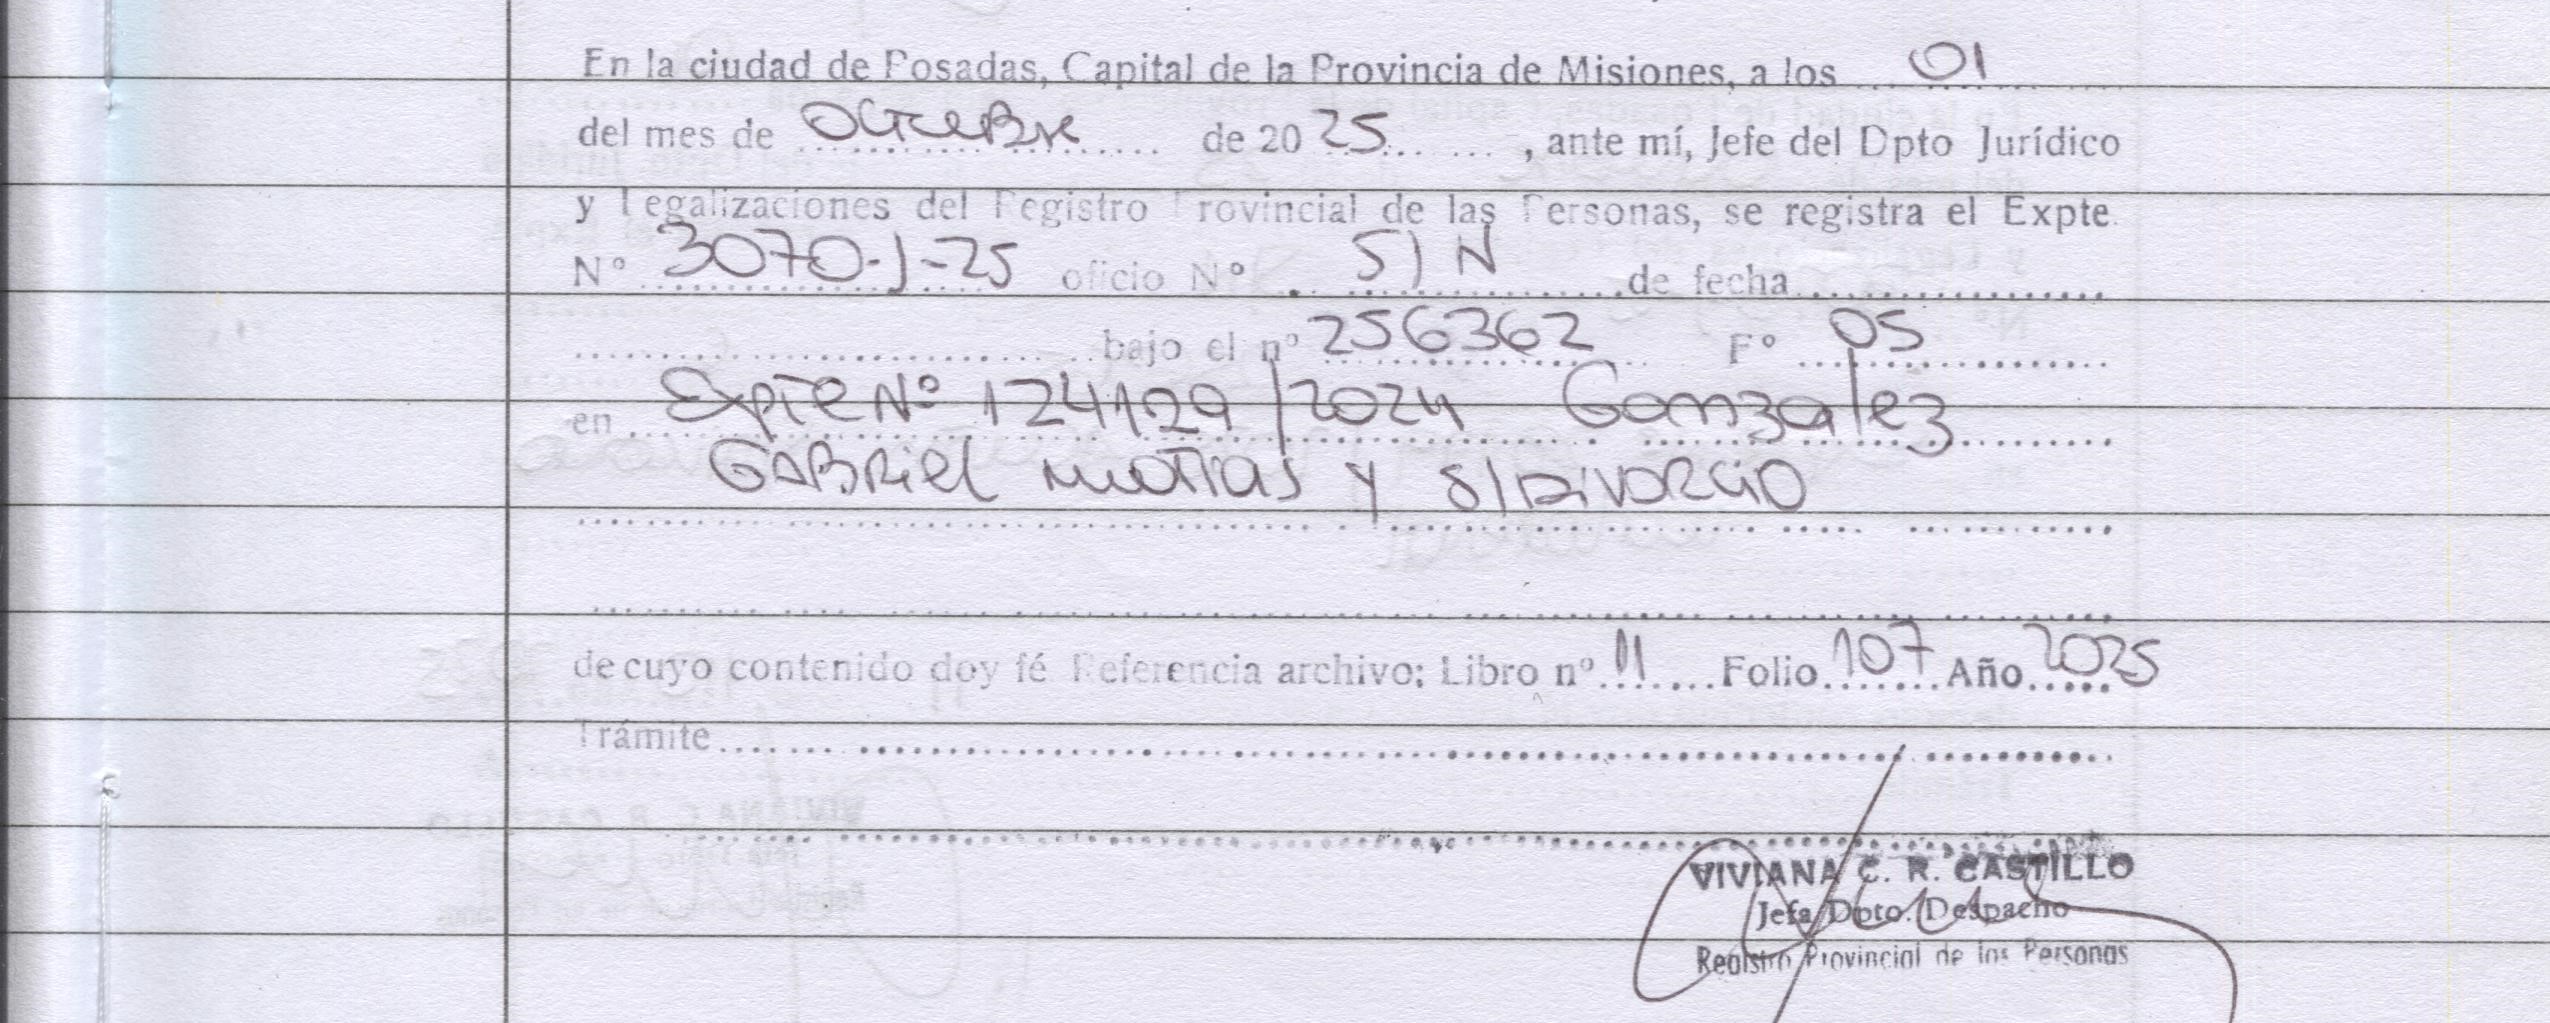 En la ciudad de Posadas, Capital de la Provincia de Misiones, a los 01
del mes de Octubre de 2025, ante mí, Jefe del Dpto Jurídico
y Legalizaciones del Registro Provincial de las Personas, se registra el Expte.
Nº 3070-J-25 oficio Nº S/N de fecha
bajo el nº 256362 Fº 05
en Expte Nº 124129/2024 Gonzalez
Gabriel Matias y S/Divorcio
de cuyo contenido doy fé Referencia archivo; Libro nº 11 Folio 107 Año 2025
Trámite
VIVIANA C. R. CASTILLO
Jefa Dpto. Despacho
Registro Provincial de las Personas